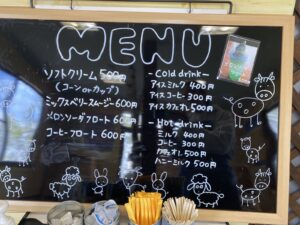 MENU
ソフトクリーム 500円
(コーンorカップ)
ミックスベリースムージー 600円
メロンソーダフロート 600円
コーヒーフロート 600円
-Cold drink-
アイスミルク 400円
アイスコーヒー 300円
アイスカフェオレ 500円
-Hot drink-
ミルク 400円
コーヒー 300円
カフェオレ 500円
ハニーミルク 500円